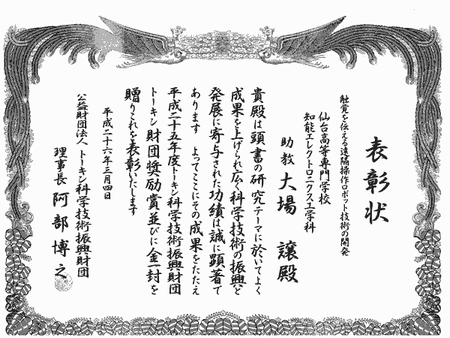 表彰状
触覚を伝える遠隔操作ロボット技術の開発
仙台高等専門学校
知能エレクトロニクス工学科
助教 大場 譲殿
貴殿は頭書の研究テーマに於いてよく
成果を上げられ広く科学技術の振興と
発展に寄与された功績は誠に顕著で
あります よってここにその成果をたたえ
平成二十五年度トーキン科学技術振興財団
トーキン財団奨励賞並びに金一封を
贈りこれを表彰いたします
平成二十六年三月四日
公益財団法人 トーキン科学技術振興財団
理事長 阿部博之